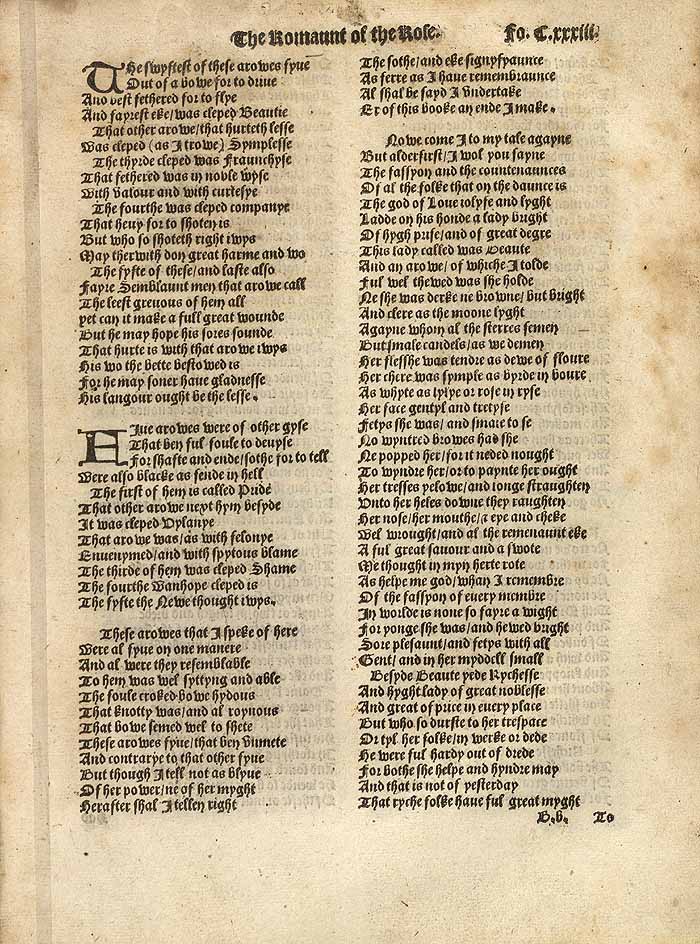 The Romaunt of the Rose. Fo. C.xxxiii.
THe swyftest of these arowes fyue
Out of a bowe for to driue
And best fethered for to flye
And fayrest eke/ was cleped Beautie
That other arowe/ that hurteth lesse
Was cleped (as I trowe) Symplesse
The thyrde cleped was Fraunchyse
That fethered was in noble wyse
With valour and with curtesye
The fourthe was cleped companye
That heuy for to shoten is
But who so shoteth right iwys
May therwith don great harme and wo
The fyfte of these/ and laste also
Fayre Semblaunt men that arowe call
The leest greuous of hem all
yet can it make a full great wounde
But he may hope his sores sounde
That hurte is with that arowe iwys
His wo the bette bestowed is
For he may soner haue gladnesse
His langour ought be the lesse.
FIue arowes were of other gyse
That ben ful foule to deuyse
For shafte and ende/ sothe for to tell
Were also blacke as fende in hell
The first of hem is called Pride
That other arowe next hym besyde
It was cleped Vylanye
That arowe was/ as with felonye
Enuenymed/ and with spytous blame
The thirde of hem was cleped Shame
The fourthe Wanhope cleped is
The fyfte the Newe thought iwys.
These arowes that I speke of here
Were al fyue on one manere
And al were they resemblable
To hem was wel syttyng and able
The foule croked bowe hydous
That knotty was/ and al roynous
That bowe semed wel to shete
These arowes fyue/ that ben vnmete
And contrarye to that other fyue
But though I tell not as blyue
Of her power/ ne of her myght
Herafter shal I tellen right
The sothe/ and eke signyfyaunce
As ferre as I haue remembraunce
Al shal be sayd I vndertake
Er of this booke an ende I make.
Nowe come I to my tale agayne
But alderfirst/ I wol you sayne
The fassyon and the countenaunces
Of al the folke that on the daunce is
The god of Loue iolyfe and lyght
Ladde on his honde a lady bright
Of hygh prise/ and of great degre
This lady called was Beaute
And an arowe/ of whiche I tolde
Ful wel thewed was she holde
Ne she was derke ne browne/ but bright
And clere as the moone lyght
Agayne whom al the sterres semen
But smale candels/ as we demen
Her flesshe was tendre as dewe of floure
Her chere was symple as byrde in boure
As whyte as lylye or rose in ryse
Her face gentyl and tretyse
Fetys she was/ and smale to se
No wyntred browes had she
Ne popped her/ for it neded nought
To wyndre her/ or to paynte her ought
Her tresses yelowe/ and longe straughten
Vnto her heles downe they raughten
Her nose/ her mouthe/ & eye and cheke
Wel wrought/ and al the remenaunt eke
A ful great sauour and a swote
Me thought in myn herte rote
As helpe me god/ whan I remembre
Of the fassyon of euery membre
In worlde is none so fayre a wight
For yonge she was/ and hewed bright
Sore plesaunt/ and fetys with all
Gent/ and in her myddell small
Besyde Beaute yede Rychesse
And hyght lady of great noblesse
And great of price in euery place
But who so durste to her trespace
Or tyl her folke/ in werke or dede
He were ful hardy out of drede
For bothe she helpe and hyndre may
And that is not of yesterday
That ryche folke haue ful great myght
B.b. To